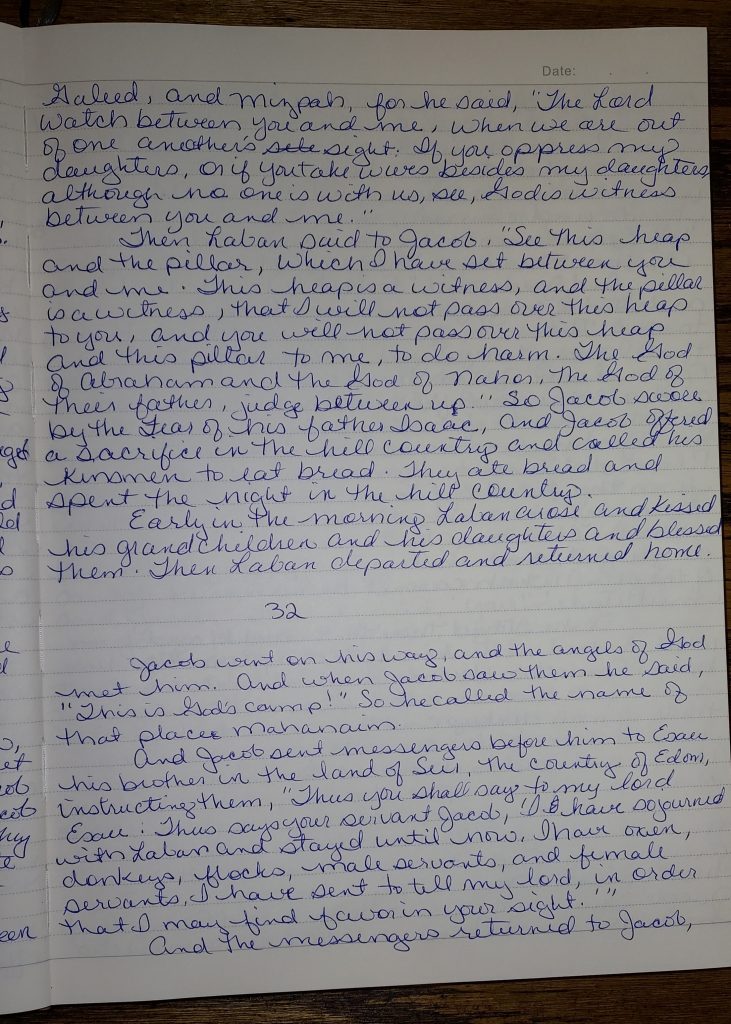 Date:
Galeed, and Mizpah, for he said, "The Lord
watch between you and me, when we are out
of one another's sight. If you oppress my
daughters, or if you take wives besides my daughters,
although no one is with us, see, God is witness
between you and me."
Then Laban said to Jacob, "See this heap
and the pillar, which I have set between you
and me. This heap is a witness, and the pillar
is a witness, that I will not pass over this heap
to you, and you will not pass over this heap
and this pillar to me, to do harm. The God
of Abraham and the God of Nahor, the God of
their father, judge between us." So Jacob swore
by the Fear of his father Isaac, and Jacob offered
a sacrifice in the hill country and called his
kinsmen to eat bread. They ate bread and
spent the night in the hill country.
Early in the morning Laban arose and kissed
his grandchildren and his daughters and blessed
them. Then Laban departed and returned home.
32
Jacob went on his way, and the angels of God
met him. And when Jacob saw them he said,
"This is God's camp!" So he called the name of
that place Mahanaim.
And Jacob sent messengers before him to Esau
his brother in the land of Seir, the country of Edom,
instructing them, "Thus you shall say to my lord
Esau: Thus says your servant Jacob, 'I have sojourned
with Laban and stayed until now. I have oxen,
donkeys, flocks, male servants, and female
servants, I have sent to tell my lord, in order
that I may find favor in your sight.'"
And the messengers returned to Jacob,